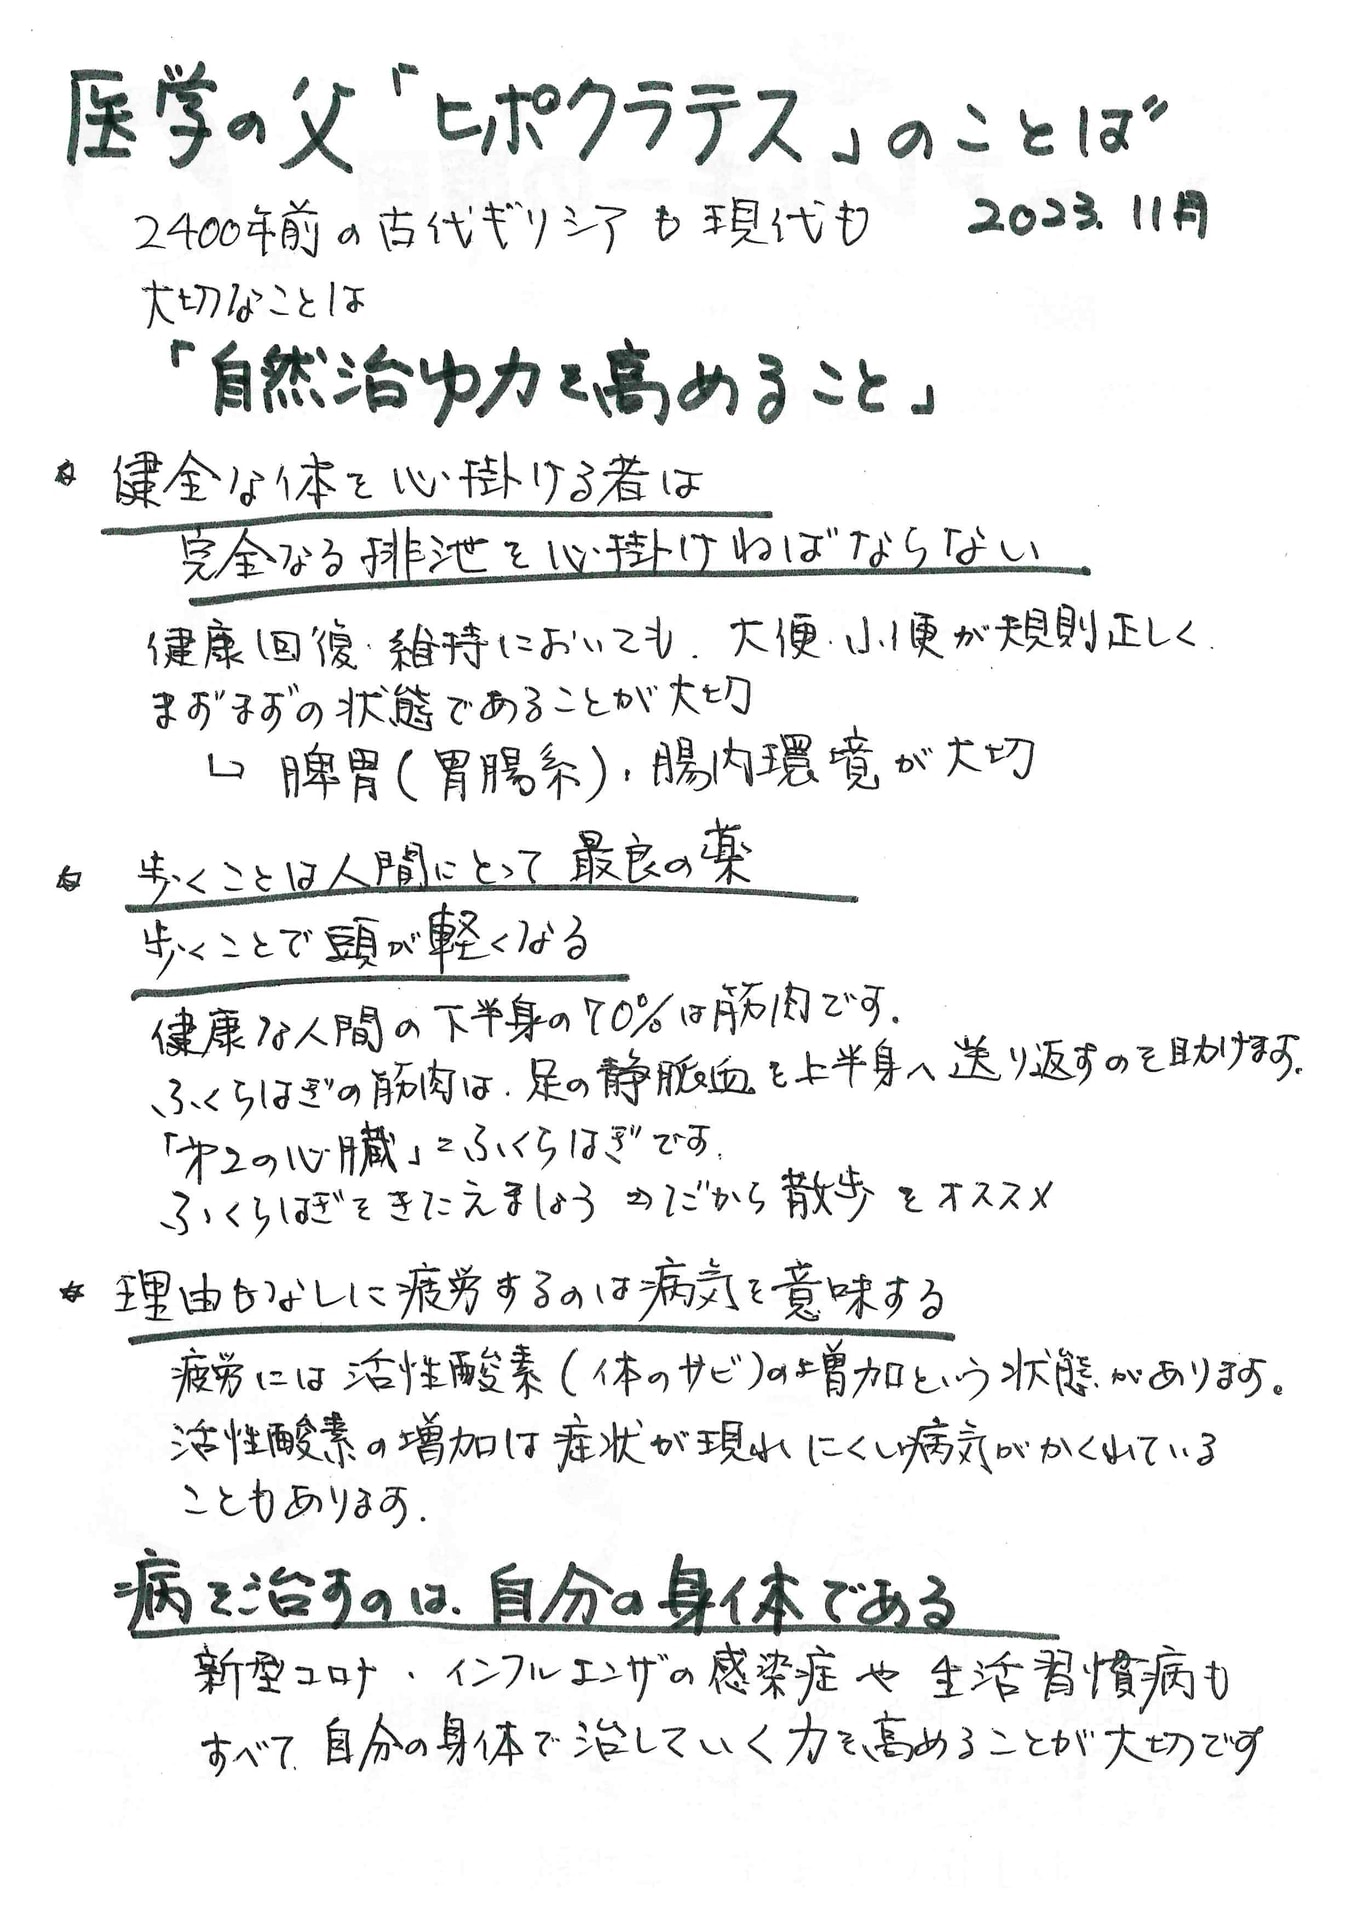 医学の父「ヒポクラテス」のことば
2400年前の古代ギリシアも現代も
2023.11月
大切なことは
「自然治ゆ力を高めること」
☆ 健全な体を心掛ける者は
完全なる排泄を心掛けねばならない
健康回復・維持においても、大便・小便が規則正しく、
まずまずの状態であることが大切
↳ 脾胃(胃腸系)、腸内環境が大切
☆ 歩くことは人間にとって最良の薬
歩くことで頭が軽くなる
健康な人間の下半身の70%は筋肉です。
ふくらはぎの筋肉は、足の静脈血を上半身へ送り返すのを助けます。
「第2の心臓」=ふくらはぎです。
ふくらはぎをきたえましょう ⇒だから散歩をオススメ
☆ 理由もなしに疲労するのは病気を意味する
疲労には活性酸素(体のサビ)の増加という状態があります。
活性酸素の増加は症状が現れにくい病気がかくれている
こともあります。
病を治すのは、自分の身体である
新型コロナ・インフルエンザの感染症や生活習慣病も
すべて、自分の身体で治していく力を高めることが大切です